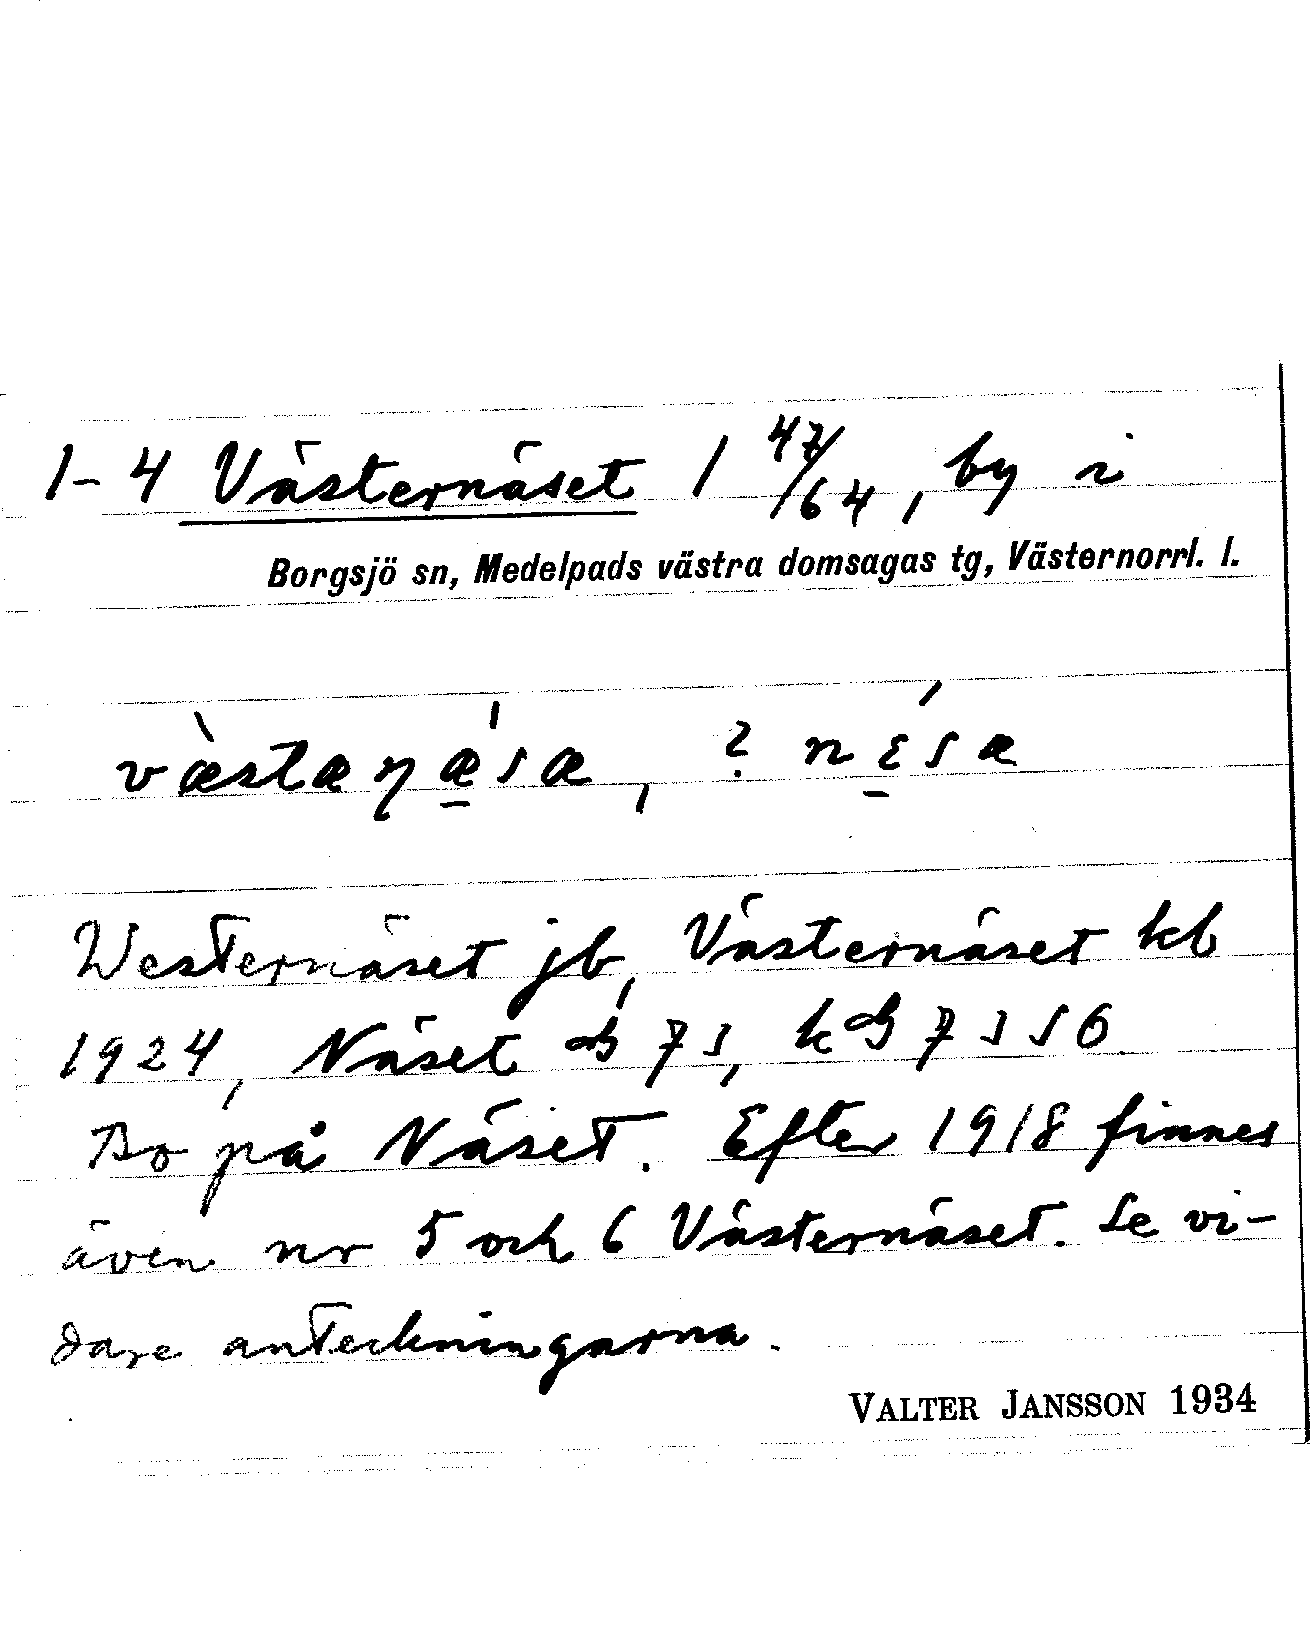 1-4 Västernäset 1 47/64, by i
Borgsjö sn, Medelpads västra domsagas tg, Västernorrl. l.
væ̀stæŋǽ̠sæ, ? nɛ̠́sæ
Westernäset jb, Västernäset kb
1924, Näset ab 71, k
Bo på Näset. Efter 1918 finnes
även nr 5 och 6 Västernäset. Se vi-
dare anteckningarna.
VALTER JANSSON 1934